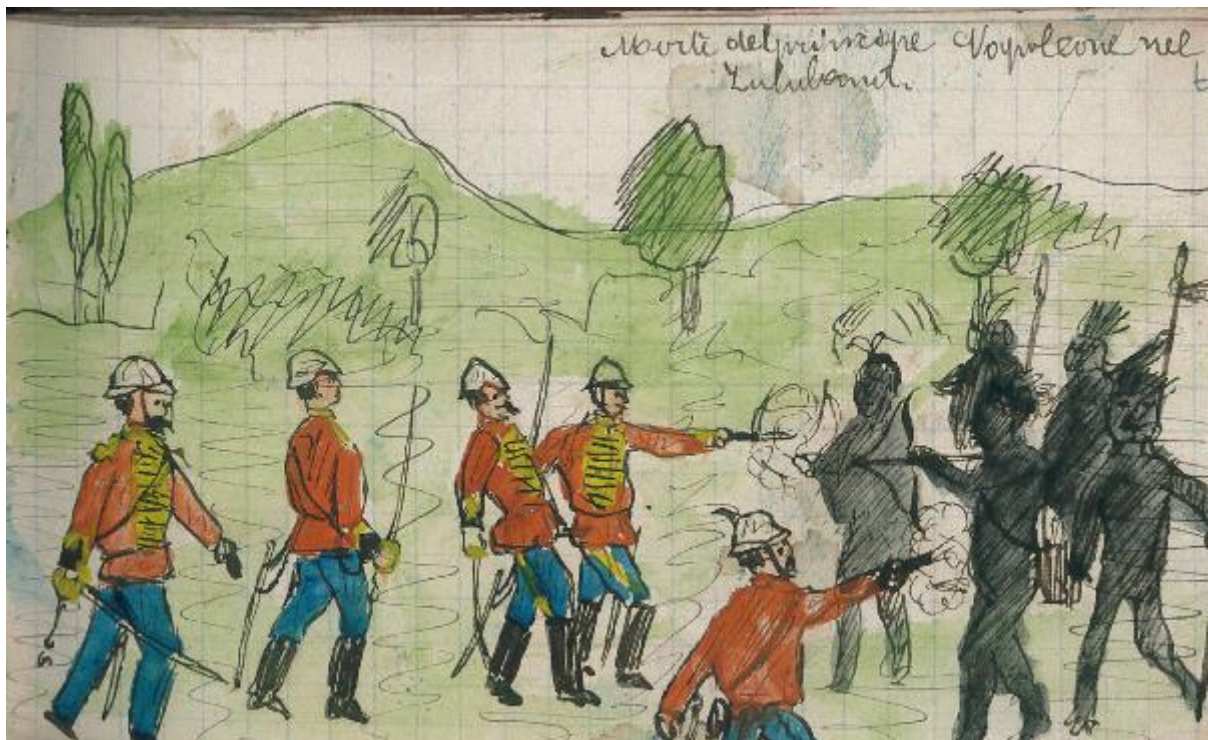 Morte del principe Napoleone nel
Zululand.